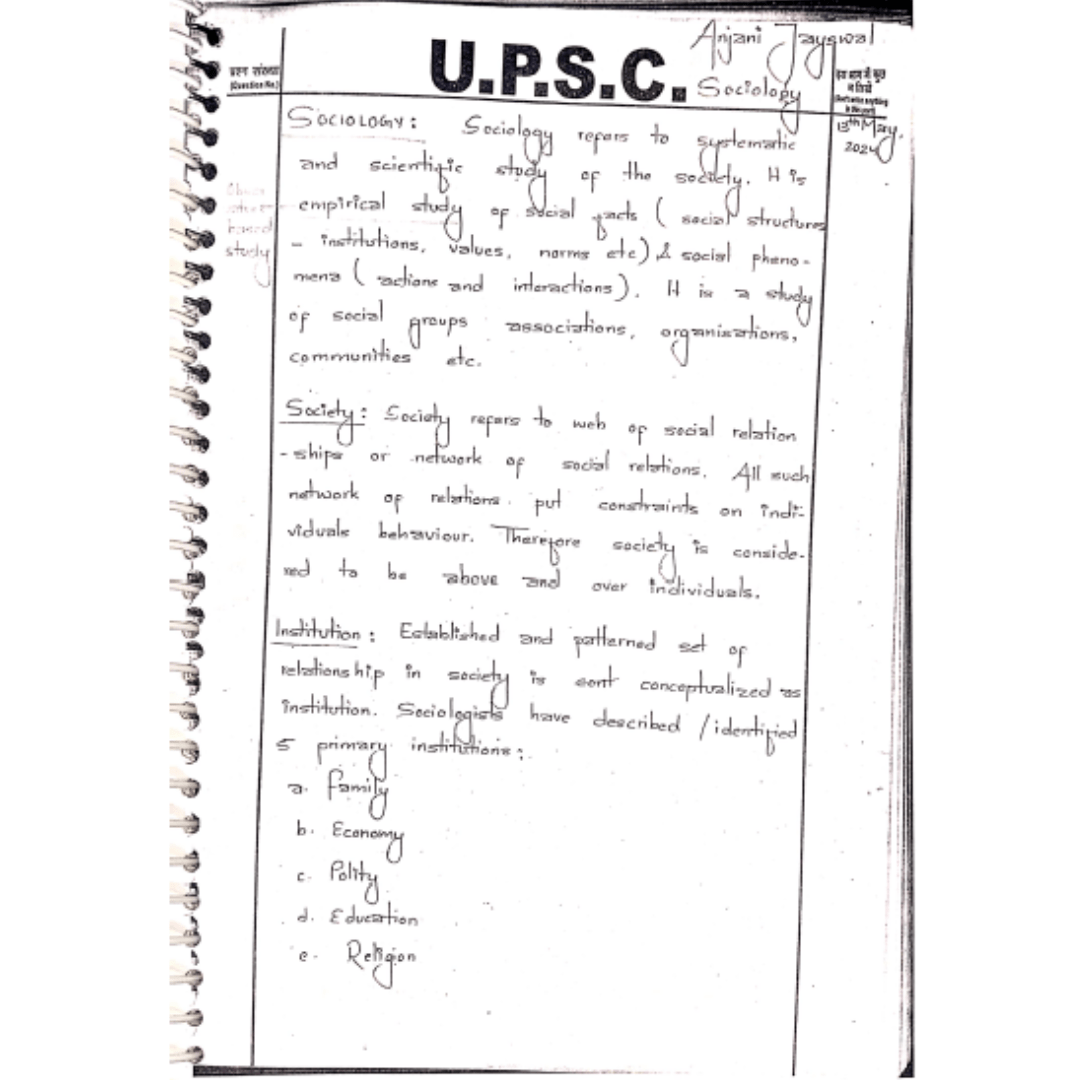 Anjani Jayswal
प्रश्न संख्या
(Question No.)
U.P.S.C.
Sociology
इस भाग में कुछ
न लिखें
(Don't write anything
in this part)
13th May,
2024
SOCIOLOGY: Sociology refers to systematic
and scientific study of the society. It is
empirical study of social facts (social structures
- institutions, values, norms etc) & social pheno-
mena (actions and interactions). It is a study
of social groups associations, organisations,
communities etc.
based
study
Society: Society refers to web of social relation
-ships or network of social relations. All such
network of relations put constraints on indi-
viduals behaviour. Therefore society is conside-
red to be above and over individuals.
Institution: Established and patterned set of
relationship in society is conceptualized as
institution. Sociologists have described /identified
5 primary institutions:
a. family
b. Economy
c. Polity
d. Education
e. Religion